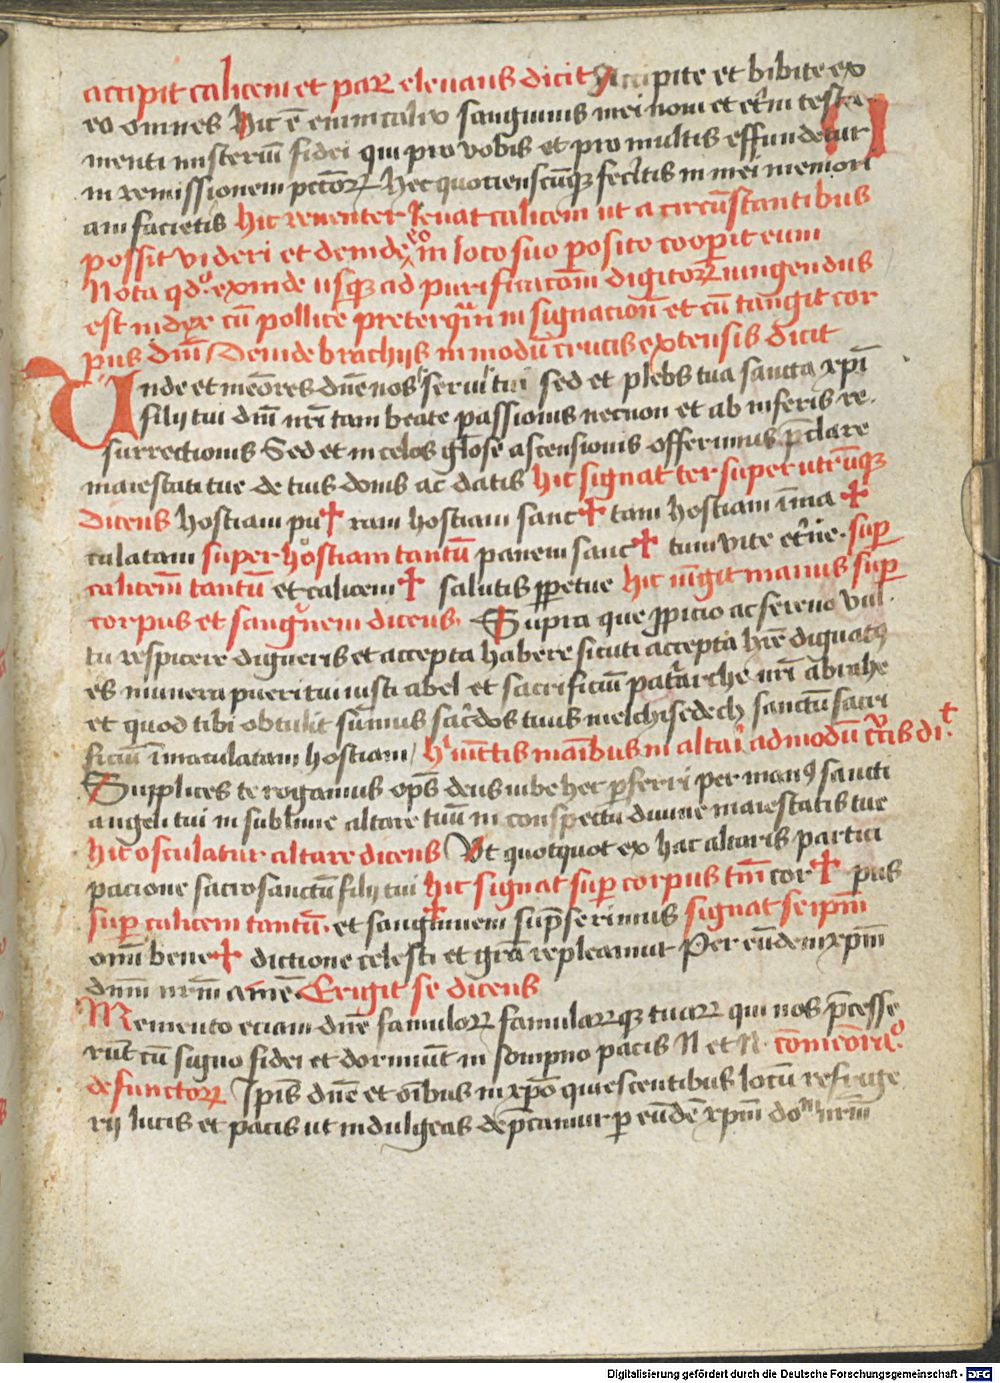 accipit calicem et par elevans dicit Accipite et bibite ex
eo omnes Hic ē enim calix sanguinis mei novi et et̄ni testa
menti misteriū fidei qui pro vobis et pro multis effundetur
in remissionem pctōrꝝ Hec quotienscūqꝫ fecitis in mei memori
am facietis hic reverenter levat calicem ut a circūstantibus
possit videri et deinde eo in loco suo posito cooperit eum
Nota qd exinde usqꝫ ad purificacōm digitorꝝ iungendus
est index cū pollice preterqm in signacion et cū tangit cor
pus dm̄ Deinde brachijs in modū crucis extensis dicit
Unde et meōres dn̄e nos servi tui sed et plebs tua sancta xpī
filij tui dm̄ nr̄i tam beate passionis necnon et ab inferis re
surrectionis Sed et in celos gl̄ose ascensionis offerimus p̄clare
maiestati tue de tuis donis ac datis hic signat ter super utrūqꝫ
dicens hostiam pu ✝ ram hostiam sanc ✝ tam hostiam īma ✝
culatam super hostiam tantū panem sanc ✝ tum vite et̄ne sup̄
calicem tantū et calicem ✝ salutis ꝑpetue hic iūgit manus sup̄
corpus et sangnem dicens Supra que ꝓpicio ac sereno vul
tu respicere digneris et accepta habere sicuti accepta hr̄e dignatꝰ
es munera pueri tui iusti abel et sacrificiū patarche nr̄i abrahe
et quod tibi obtulit sūmus sacdos tuus melchisedech sanctū sacri
ficiū īmaculatam hostiam h iūctis maībus in altai ad modū cīcis di t
Supplices te rogamus op̄s deus iube hec ꝑferri per manꝰ sancti
angeli tui in sublime altare tuū in conspectu divine maiestatis tue
hic osculatur altare dicens Ut quotquot ex hac altaris partici
pacione sacrosanctū filij tui hic signat sup̄ corpus tm̄ cor ✝ pus
sup̄ calicem tantū et sang ✝ uinem sūpserimus signat seip̄m
omī bene ✝ dictione celesti et grā repleamur Per eūdem xp̄m
dnm̄ nrm̄ amē Erigit se dicens
Memento eciam dn̄e famulorꝝ famularꝝqꝫ tuarꝝ qui nos p̄cesse
rūt cū signo fidei et dormiūt in sompno pacis N et N comēora
defunctorꝝ Ipis dn̄e et oībus in xpō quiescentibus locū refrige
rij lucis et pacis ut indulgeas dep̄camur ꝑ eūdē xp̄m do nrm̄
Digitalisierung gefördert durch die Deutsche Forschungsgemeinschaft - DFG